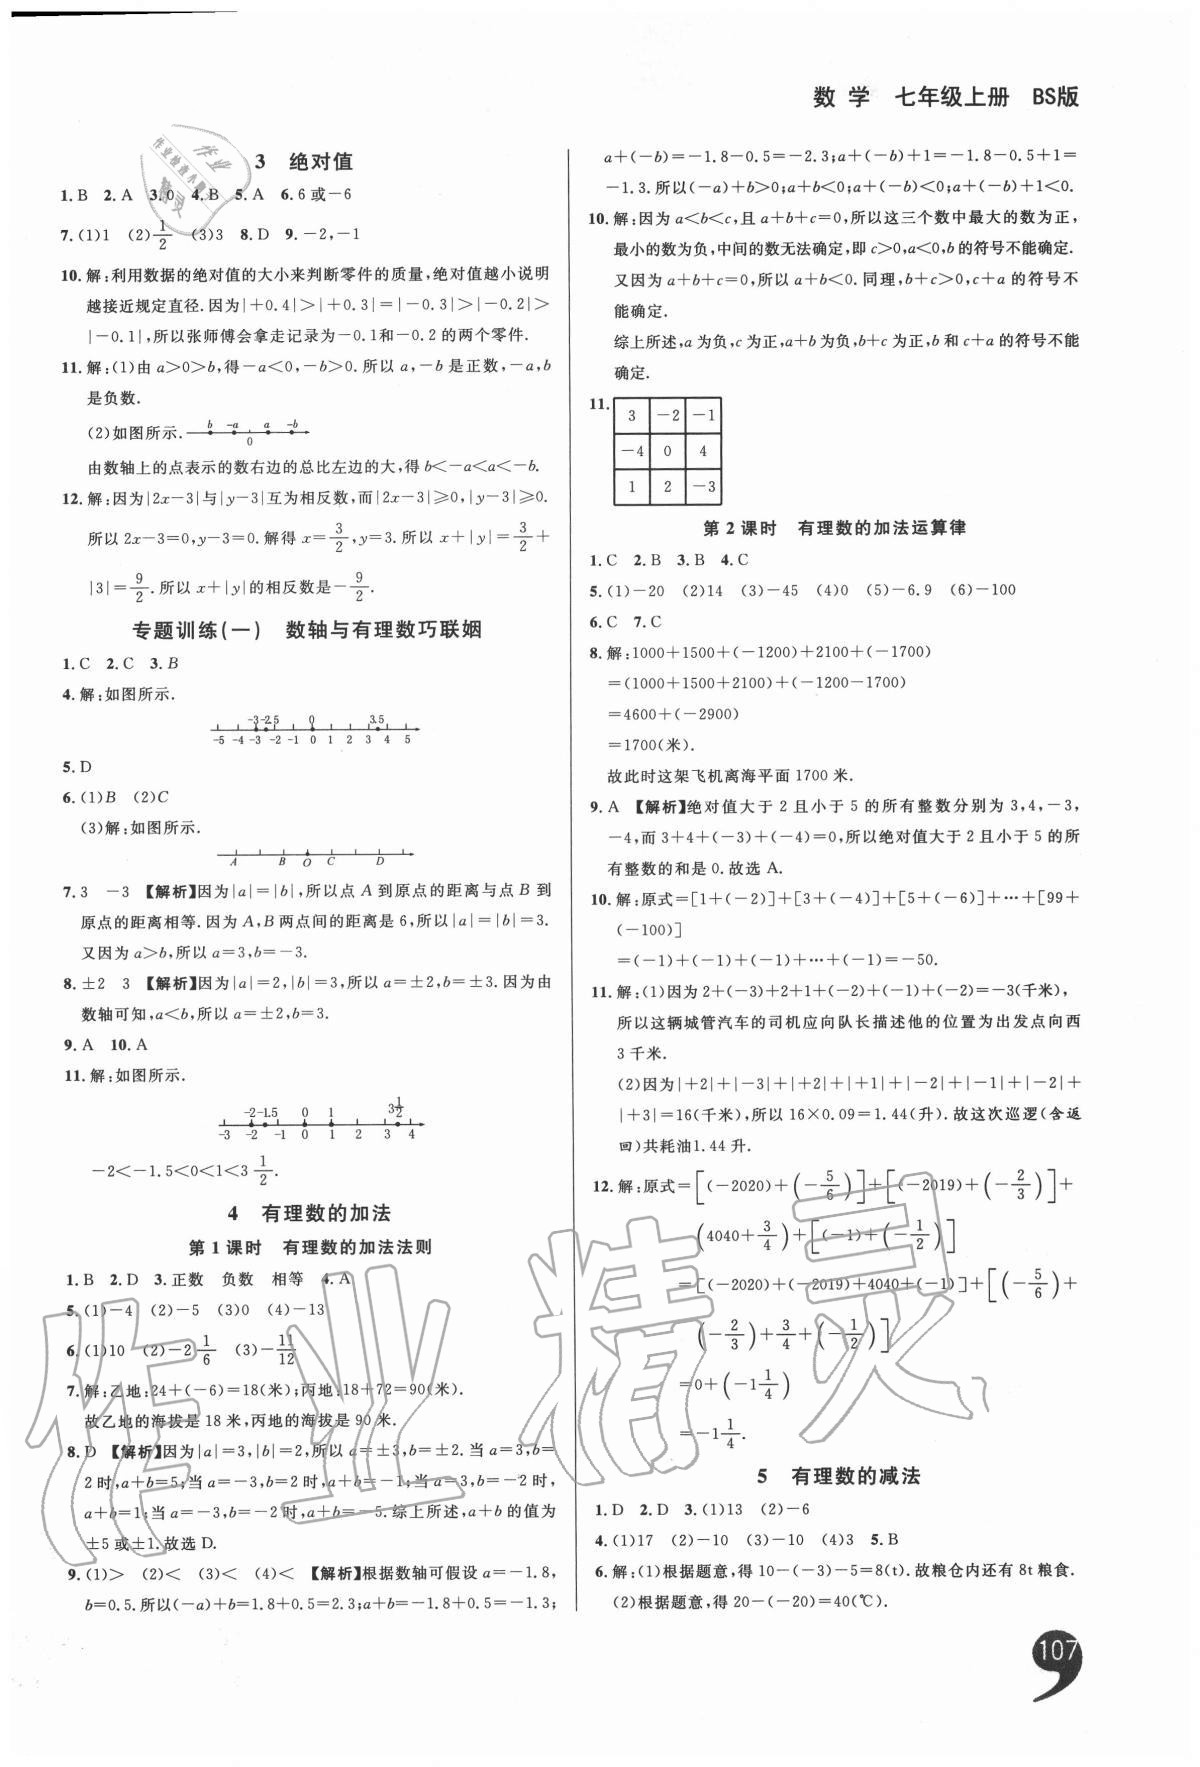 数 学 七年级上册 BS版
3 绝对值
1.B 2.A 3.0 4.B 5.A 6.6或-6
7.(1)1 (2)1/2 (3)3 8.D 9.-2,-1
10.解:利用数据的绝对值的大小来判断零件的质量,绝对值越小说明
越接近规定直径.因为|+0.4|>|+0.3|=|-0.3|>|-0.2|>
|-0.1|,所以张师傅会拿走记录为-0.1和-0.2的两个零件.
11.解:(1)由a>0>b,得-a<0,-b>0.所以a,-b是正数,-a,b
是负数.
(2)如图所示. b -a a -b
0
由数轴上的点表示的数右边的总比左边的大,得b<-a<a<-b.
12.解:因为|2x-3|与|y-3|互为相反数,而|2x-3|≥0,|y-3|≥0.
所以2x-3=0,y-3=0.解得x=3/2,y=3.所以x+|y|=3/2+
|3|=9/2.所以x+|y|的相反数是-9/2.
专题训练(一) 数轴与有理数巧联姻
1.C 2.C 3.B
4.解:如图所示.
-3 -2.5 0 3.5
-5 -4 -3 -2 -1 0 1 2 3 4 5
5.D
6.(1)B (2)C
(3)解:如图所示.
A B O C D
7.3 -3 【解析】因为|a|=|b|,所以点A到原点的距离与点B到
原点的距离相等.因为A,B两点间的距离是6,所以|a|=|b|=3.
又因为a>b,所以a=3,b=-3.
8.±2 3 【解析】因为|a|=2,|b|=3,所以a=±2,b=±3.因为由
数轴可知,a<b,所以a=±2,b=3.
9.A 10.A
11.解:如图所示.
-2 -1.5 0 1 3 1/2
-3 -2 -1 0 1 2 3 4
-2<-1.5<0<1<3 1/2.
4 有理数的加法
第1课时 有理数的加法法则
1.B 2.D 3.正数 负数 相等 4.A
5.(1)-4 (2)-5 (3)0 (4)-13
6.(1)10 (2)-2 1/6 (3)-11/12
7.解:乙地:24+(-6)=18(米);丙地:18+72=90(米).
故乙地的海拔是18米,丙地的海拔是90米.
8.D 【解析】因为|a|=3,|b|=2,所以a=±3,b=±2.当a=3,b=
2时,a+b=5;当a=-3,b=2时,a+b=-1;当a=3,b=-2时,
a+b=1;当a=-3,b=-2时,a+b=-5.综上所述,a+b的值为
±5或±1.故选D.
9.(1)> (2)< (3)< (4)< 【解析】根据数轴可假设a=-1.8,
b=0.5.所以(-a)+b=1.8+0.5=2.3;a+b=-1.8+0.5=-1.3;
a+(-b)=-1.8-0.5=-2.3;a+(-b)+1=-1.8-0.5+1=
-1.3.所以(-a)+b>0;a+b<0;a+(-b)<0;a+(-b)+1<0.
10.解:因为a<b<c,且a+b+c=0,所以这三个数中最大的数为正,
最小的数为负,中间的数无法确定,即c>0,a<0,b的符号不能确定.
又因为a+b+c=0,所以a+b<0.同理,b+c>0,c+a的符号不
能确定.
综上所述,a为负,c为正,a+b为负,b+c为正,b和c+a的符号不能
确定.
11.
3 -2 -1
-4 0 4
1 2 -3
第2课时 有理数的加法运算律
1.C 2.B 3.B 4.C
5.(1)-20 (2)14 (3)-45 (4)0 (5)-6.9 (6)-100
6.C 7.C
8.解:1000+1500+(-1200)+2100+(-1700)
=(1000+1500+2100)+(-1200-1700)
=4600+(-2900)
=1700(米).
故此时这架飞机离海平面1700米.
9.A 【解析】绝对值大于2且小于5的所有整数分别为3,4,-3,
-4,而3+4+(-3)+(-4)=0,所以绝对值大于2且小于5的所
有整数的和是0.故选A.
10.解:原式=[1+(-2)]+[3+(-4)]+[5+(-6)]+…+[99+
(-100)]
=(-1)+(-1)+(-1)+…+(-1)=-50.
11.解:(1)因为2+(-3)+2+1+(-2)+(-1)+(-2)=-3(千米),
所以这辆城管汽车的司机应向队长描述他的位置为出发点向西
3千米.
(2)因为|+2|+|-3|+|+2|+|+1|+|-2|+|-1|+|-2|+
|+3|=16(千米),所以16×0.09=1.44(升).故这次巡逻(含返
回)共耗油1.44升.
12.解:原式=[(-2020)+(-5/6)]+[(-2019)+(-2/3)]+
(4040+3/4)+[(-1)+(-1/2)]
=[(-2020)+(-2019)+4040+(-1)]+[(-5/6)+
(-2/3)+3/4+(-1/2)]
=0+(-1 1/4)
=-1 1/4.
5 有理数的减法
1.D 2.D 3.(1)13 (2)-6
4.(1)17 (2)-10 (3)-10 (4)3 5.B
6.解:(1)根据题意,得10-(-3)-5=8(t).故粮仓内还有8t粮食.
(2)根据题意,得20-(-20)=40(℃).
107
作业精灵